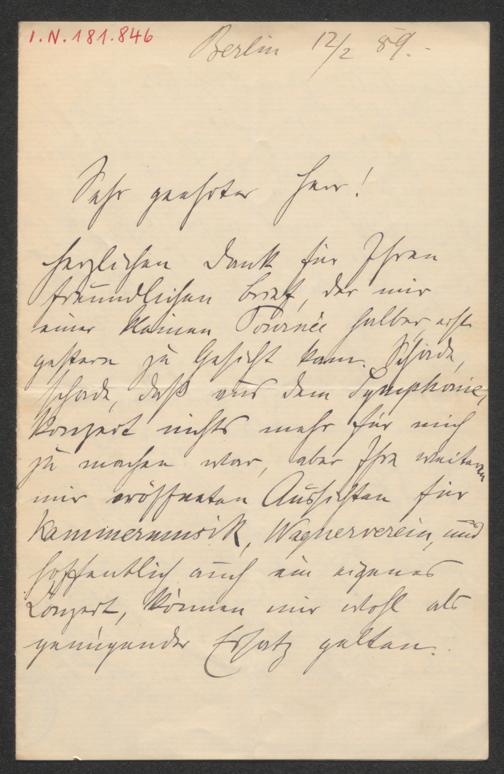 I.N.181.846
Berlin 12/2 89.-
Sehr geehrter Herr!
Herzlichen Dank für Ihren
freundlichen Brief, der mir
einer kleinen Tournée halber erst
gestern zu Gesicht kam. Schade,
schade, daß aus dem Symphonie,
konzert nichts mehr für mich
zu machen war, aber Ihre weiteren
mir eröffneten Aussichten für
Kammermusik, Wagnerverein, und
hoffentlich auch ein eigenes
Conzert, können mir wohl als
genügender Ersatz gelten.